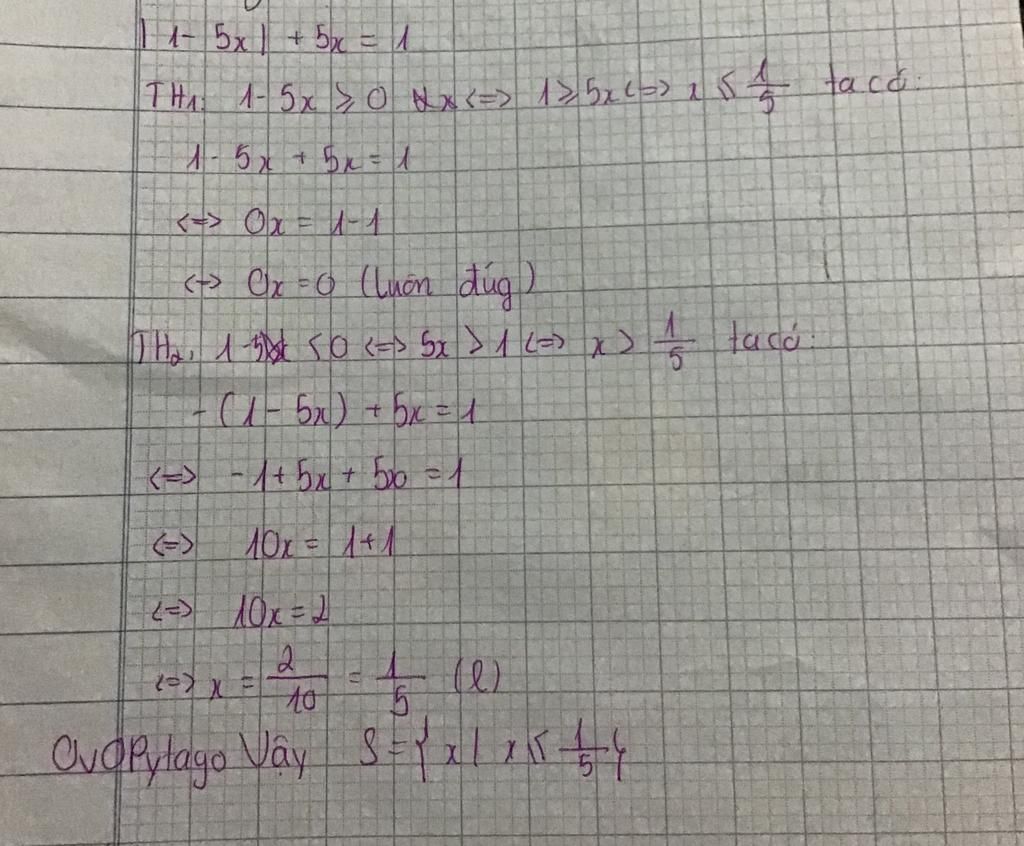 |1 - 5x| + 5x = 1
TH1: 1 - 5x ≥ 0 <=> 1 ≥ 5x <=> x ≤ 1/5 ta có:
1 - 5x + 5x = 1
<=> 0x = 1 - 1
<=> 0x = 0 (luôn đúg)
TH2: 1 - 5x < 0 <=> 5x > 1 <=> x > 1/5 ta có:
- (1 - 5x) + 5x = 1
<=> - 1 + 5x + 5x = 1
<=> 10x = 1 + 1
<=> 10x = 2
<=> x = 2/10 = 1/5 (l)
OvOPytago Vậy S = {x | x ≤ 1/5}